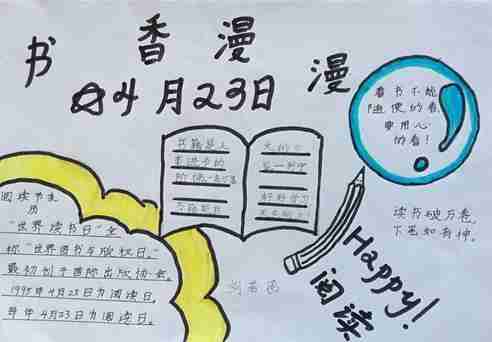 书香漫漫
☆4月23日
看书不能
随便的看,
要用心
的看!
书籍是人
类进步的
阶梯
好好学习
天天向上
读书破万卷,
下笔如有神。
Happy!
阅读
阅读节来
历
"世界读书日"全
称"世界图书与版权日",
最初创于国际出版协会。
1995年4月23日为阅读日。
每年4月23日为阅读日。